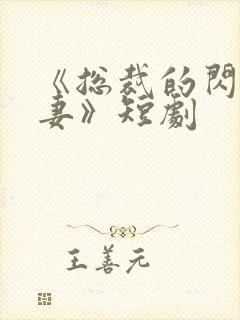 《总裁的閃
妻》短劇
王善元